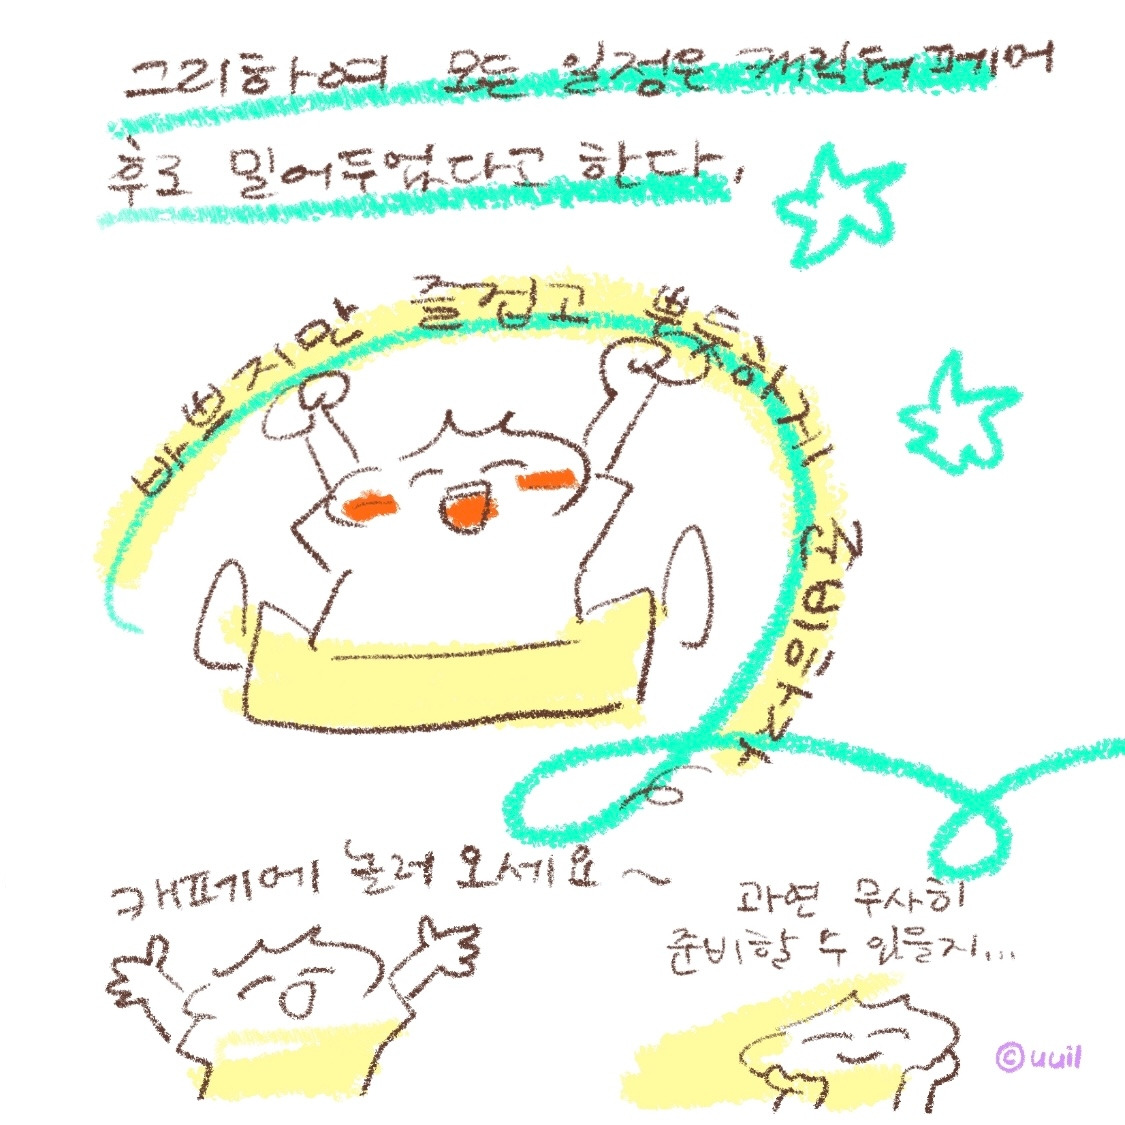 그리하여 모든 일정은 캐릭터 페어
후로 밀어두었다고 한다.
바쁘지만 즐겁고 뿌듯하게 준비중
캐페에 놀러 오세요~
과연 무사히
준비할 수 있을지...
©uuil